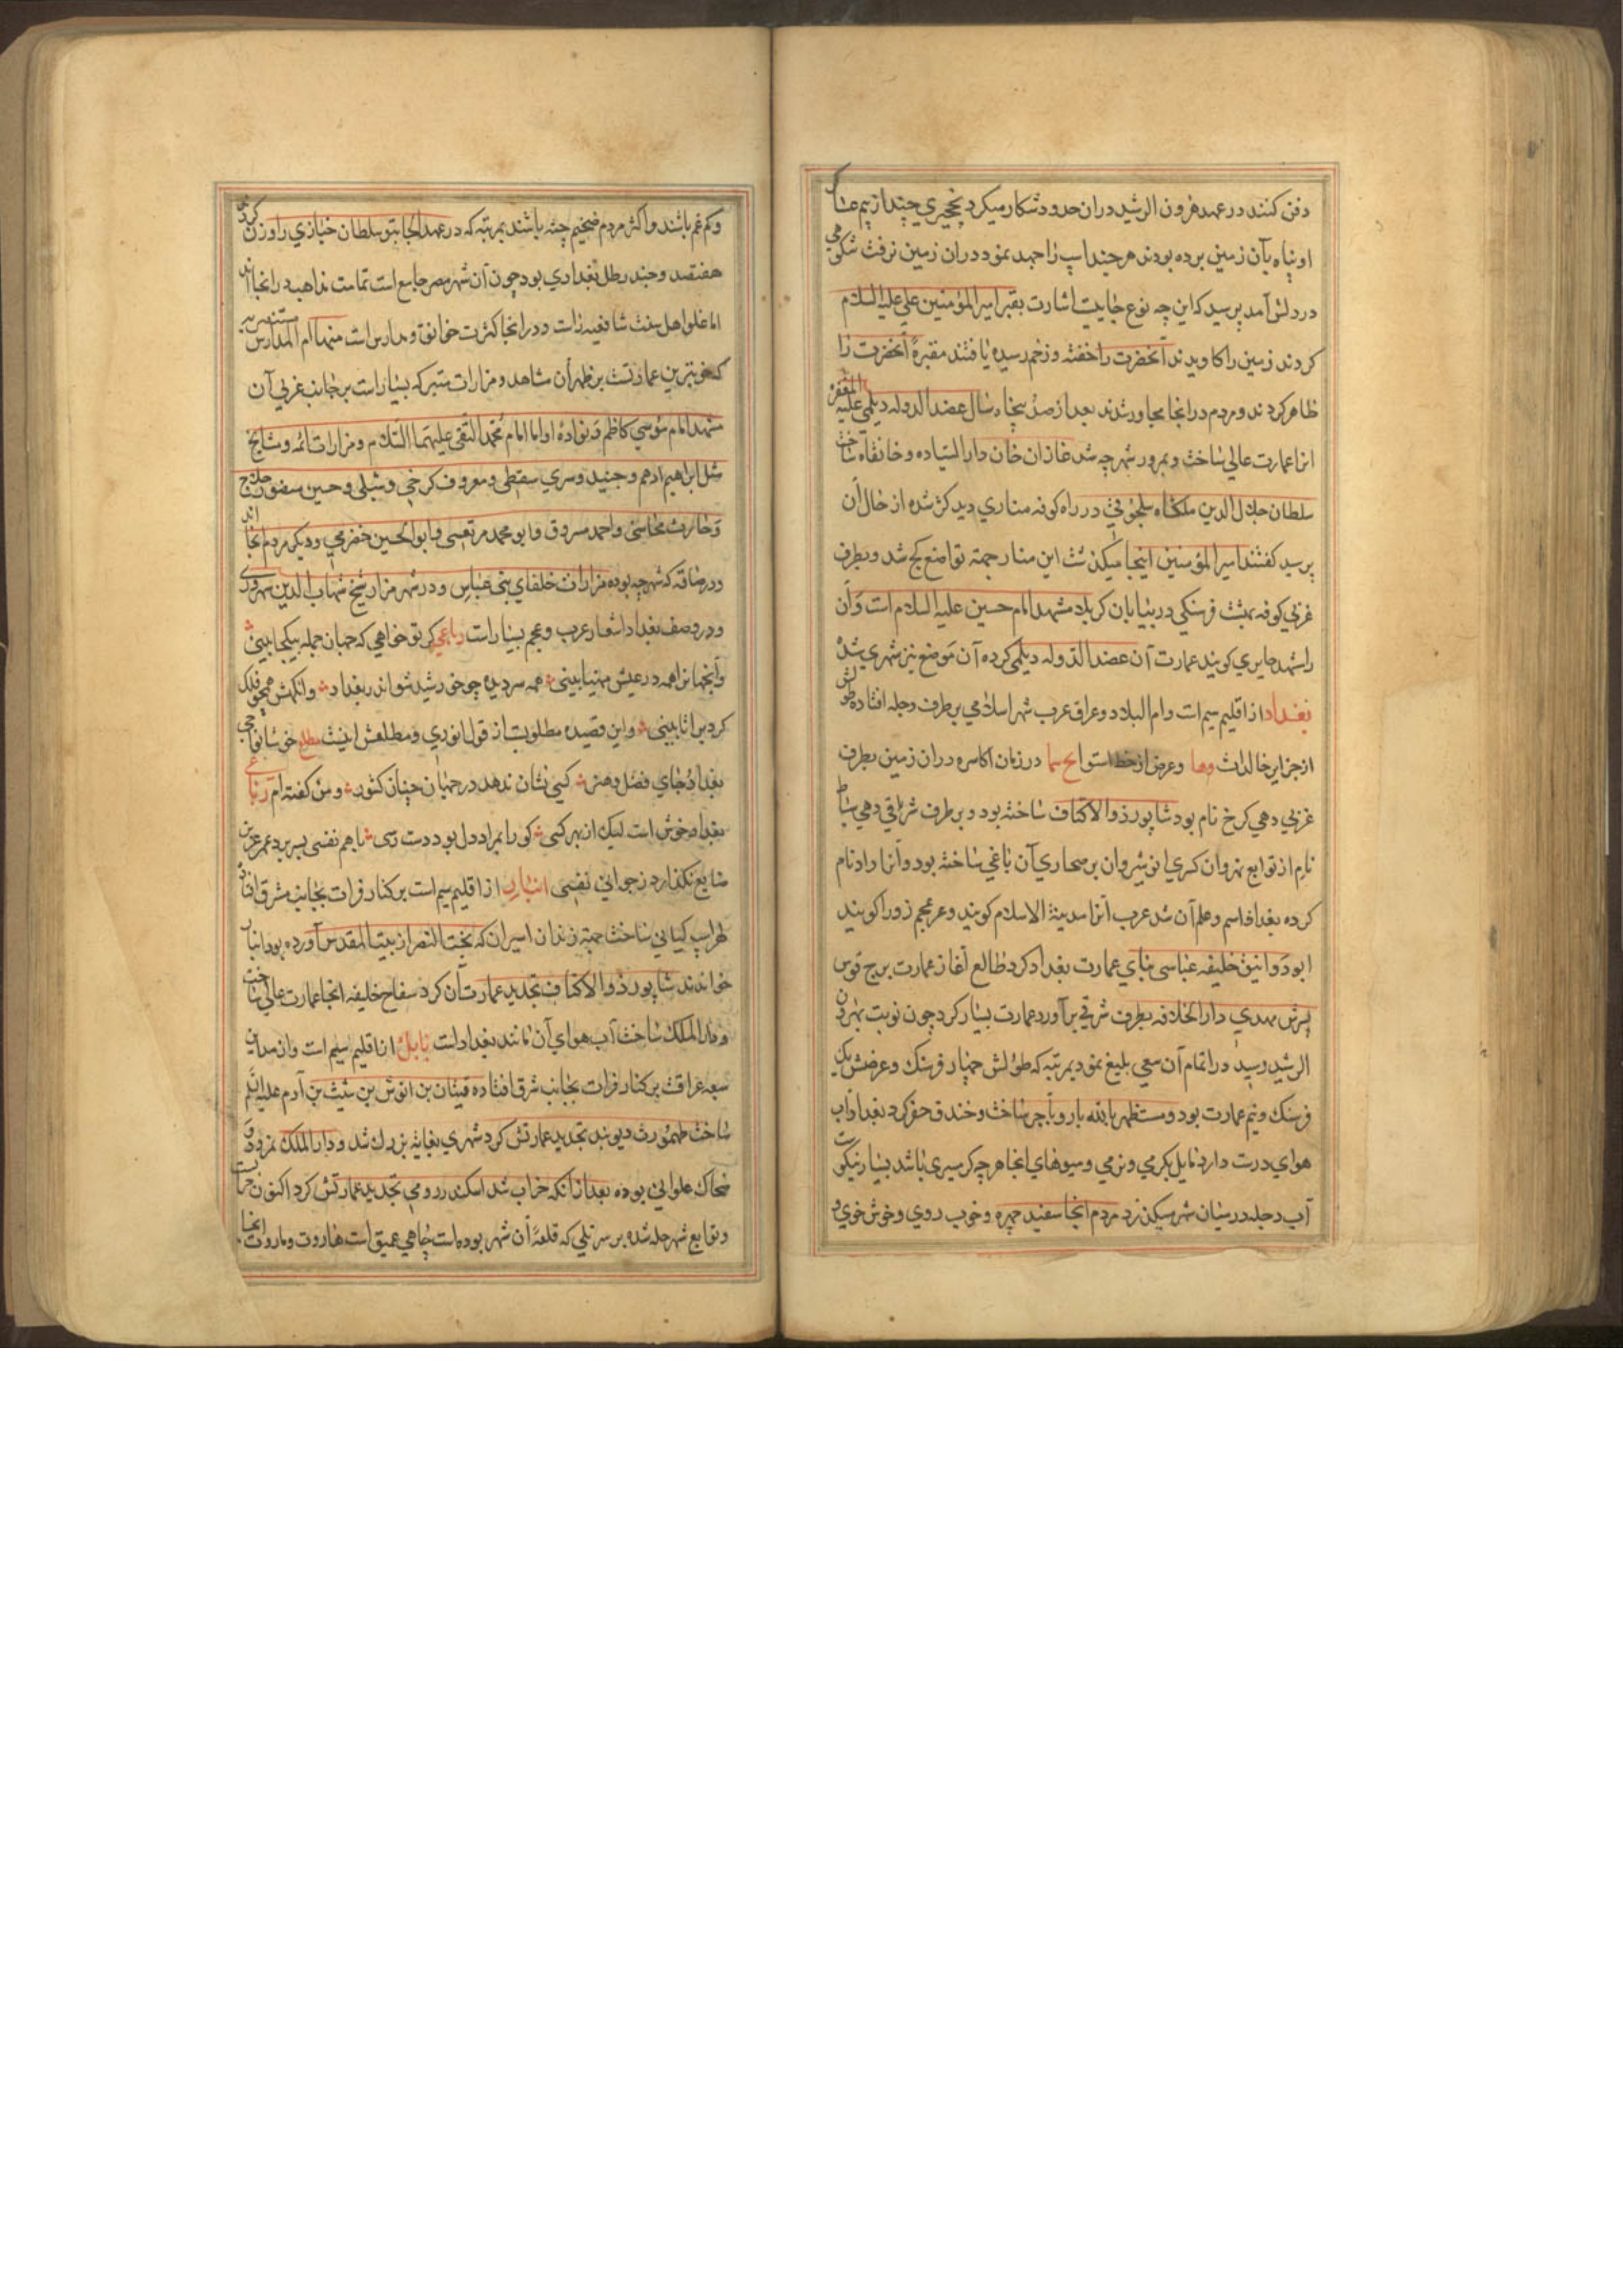 دفن کنند در عهد هرون الرشید دران حدود شکار میکرد نخچیری چند از بیم
او پناه بآن زمین برده بودند هرچند اسپ را جهد نمود دران زمین نرفت شکوهی
در دلش آمد پرسید که این چه نوع جاییت اشارت بقبر امیر المؤمنین علی علیه السلام
کردند زمین را کاویدند آنحضرت را خفته و زخم رسیده یافتند مقبرهٔ آنحضرت را
ظاهر کردند و مردم در انجا مجاور شدند بعد از صد پنجاه سال عضد الدوله دیلمی علیه المغفره
انرا عمارت عالی ساخت و بمرور شهرچه شد غازان خان دار السیاده و خانقاه ساخت
سلطان جلال الدین ملکشاه سلجوقی در راه کوفه مناری دید کژ شده از حال آن
پرسید کفتند امیر المؤمنین اینجا میکذشت این منار جهة تواضع کج شد و بطرف
غربی کوفه بهشت فرسنکی در بیابان کربلا مشهد امام حسین علیه السلام است و آن
را مشهد حایری کویند عمارت آن عضد الدوله دیلمی کرده آن موضع نیز شهری شده
بغداد از اقلیم سیم است و ام البلاد و عراق عرب شهر اسلامی بر طرف دجله افتاده طولش
از جزایر خالدات و عرض از خط استوا در زمان اکاسره دران زمین بطرف
غربی دهی کرخ نام بود شاپور ذو الاکتاف ساخته بود و بر طرف شرقی دهی ساباط
نام از توابع نهروان کسری انوشیروان بر صحاری آن باغی ساخته بود و آنرا داد نام
کرده بغداد اسم و علم آن شد عرب آنرا مدینة الاسلام کویند و عر عجم زورا کویند
ابو دوانیق خلیفه عباسی بنای عمارت بغداد کرد طالع آغاز عمارت برج قوس
پسرش مهدی دار الخلافه بطرف شرقی برآورد عمارت بسیار کرد چون نوبت بهرون
الرشید رسید در اتمام آن سعی بلیغ نمود بمرتبه که طولش چهار فرسنک و عرضش یک
فرسنک و نیم عمارت بود و مستظهر بالله بارو بآجر ساخت و خندق حفر کرد بغداد آب
هوای درست دارد مایل بکرمی و نرمی و میوهای انجا هرچه کرمسیری باشد بسیار نیکوست
آب دجله در میان شهر میکذرد مردم انجا سفید چهره و خوب روی و خوش خوی و
و کم غم باشند و اکثر مردم ضخیم جثه باشند بمرتبه که در عهد الجایتو سلطان خبازی را وزن کردند
هفتصد و چند رطل بغدادی بود چون آن شهر مصر جامع است تمامت مذاهب در انجا اند
اما غلو اهل سنت شافعیه راست و در انجا کثرت خوانق و مدارس است منها ام المدارس مستنصریه
که خوبترین عمارتست بر ظهر آن مشاهد و مزارات متبرکه بسیار است بر جانب غربی آن
مشهد امام موسی کاظم و نواده او اما امام محمد التقی علیهما السلام و مزارات ائمه و مشایخ
مثل ابراهیم ادهم و جنید و سری سقطی و معروف کرخی و شبلی و حسین منصور حلاج
و حارث محاسبی و احمد مسروق و ابو محمد مرتعش و ابو الحسین حضرمی و دیکر مردم انجا اند
و در رصافه که شهرچه بوده مزارات خلفای بنی عباس و در شهر مزار شیخ شهاب الدین سهروردی
و در وصف بغداد اشعار عرب و عجم بسیار است رباعی کر تو خواهی که جهان جمله بیکجا بینی
وآنجهانرا همه در عیش مهنا بینی همه سر دیده چو خورشید شو اندر بغداد وانکهش همچو فلک
کرد برآ تا ببینی و این قصیده مطلوبست از قول انوری و مطلعش اینست مطلع خوشا نواحی
بغداد جای فضل و هنر کسی نشان ندهد در جهان چنان کشور و من کفته ام رباعی
بغداد خوش است لیک از بهر کسی کو را بمراد دل بود دست رسی با هم نفسی بسر برد عمر عزیز
ضایع نکذارد ز جوانی نفسی انبار از اقلیم سیم است بر کنار فرات بجانب مشرق افتاده
لهراسپ کیانی ساخت جهة زندان اسیران که بخت النصر از بیت المقدس آورده بود انبار
خواندند شاپور ذو الاکتاف تجدید عمارت آن کرد سفاح خلیفه انجا عمارت عالی ساخت
و دار الملک ساخت آب هوای آن مانند بغداد است بابل از اقلیم سیم است و از مداین
سبعه عراقست بر کنار فرات بجانب شرق افتاده قینان بن انوش بن شیث بن آدم علیه السلم
ساخت طهمورث دیوبند تجدید عمارتش کرد شهری بغایه بزرک شد و دار الملک نمرود و
ضحاک علوانی بوده بعد از انکه خراب شد اسکندر رومی تجدید عمارتش کرد اکنون خرابست
و توابع شهر حله شده بر سر تلی که قلعهٔ آن شهر بوده است چاهی عمیق است هاروت و ماروت انجا